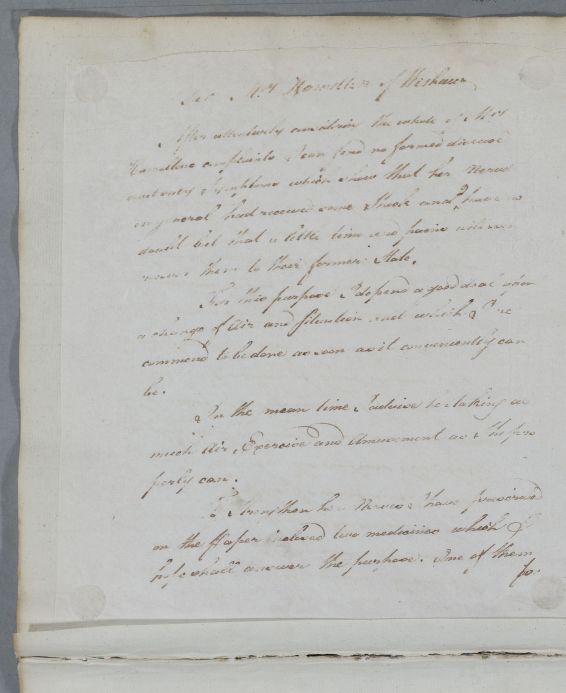 For Mrs Hamilton of Wishaw
After attentively considering the whole of Mrs
Hamiltons complaints I can find no formed disease
and only Symptoms which show that her Nerves
in general had received some Shock and I have no
doubt but that a little time and pains will re
move them to their former State.
For this purpose I depend a good deal upon
a change of Air and Situation and which I re
commend to be done as soon as it conveniently can
be.
In the mean time I advise her taking as
much Air, Exercise and Amusement as She pro
perly can.
To Strengthen her Nerves I have prescribed
on the Paper inclosed two medicines which I
hope shall answer the purpose. One of them
for